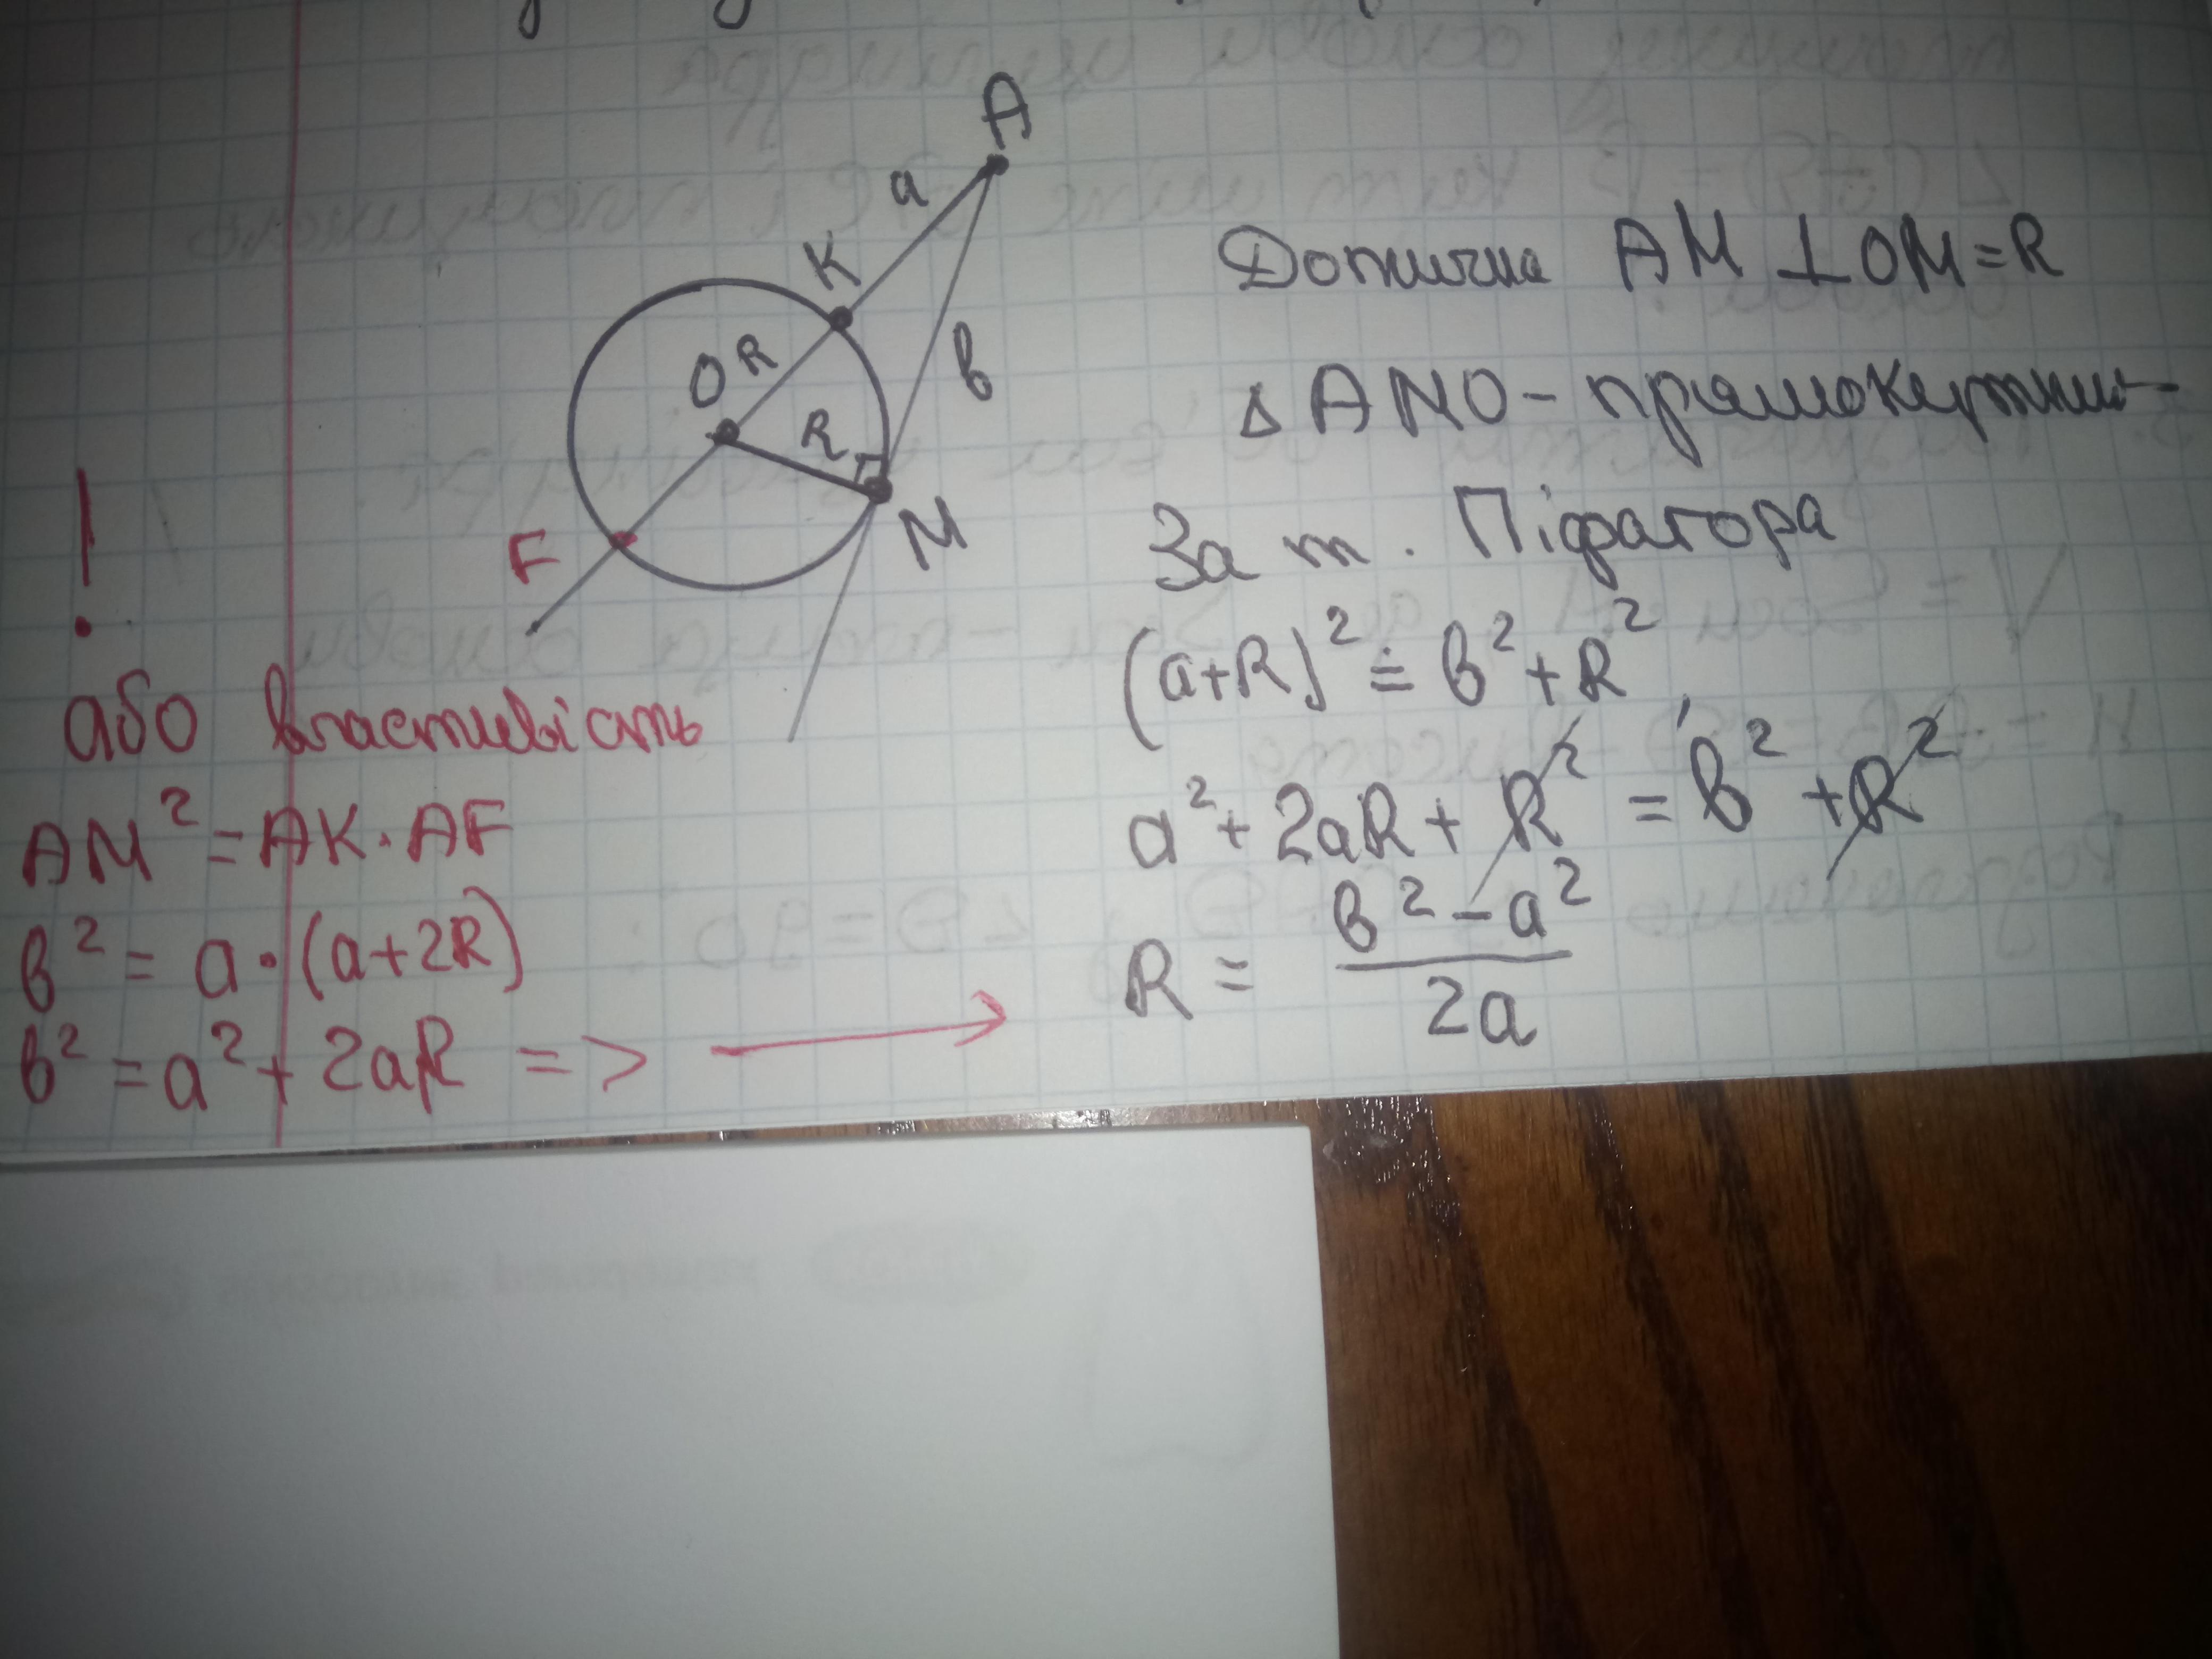 A
a
K
в
O R
R
M
F
Дотична AM ⊥ OM = R
Δ AMO - прямокутний
За т. Піфагора
(a+R)² = в² + R²
a² + 2aR + R² = в² + R²
R = в² - a² / 2a
!
або властивість
AM² = AK · AF
в² = a · (a+2R)
в² = a² + 2aR =>